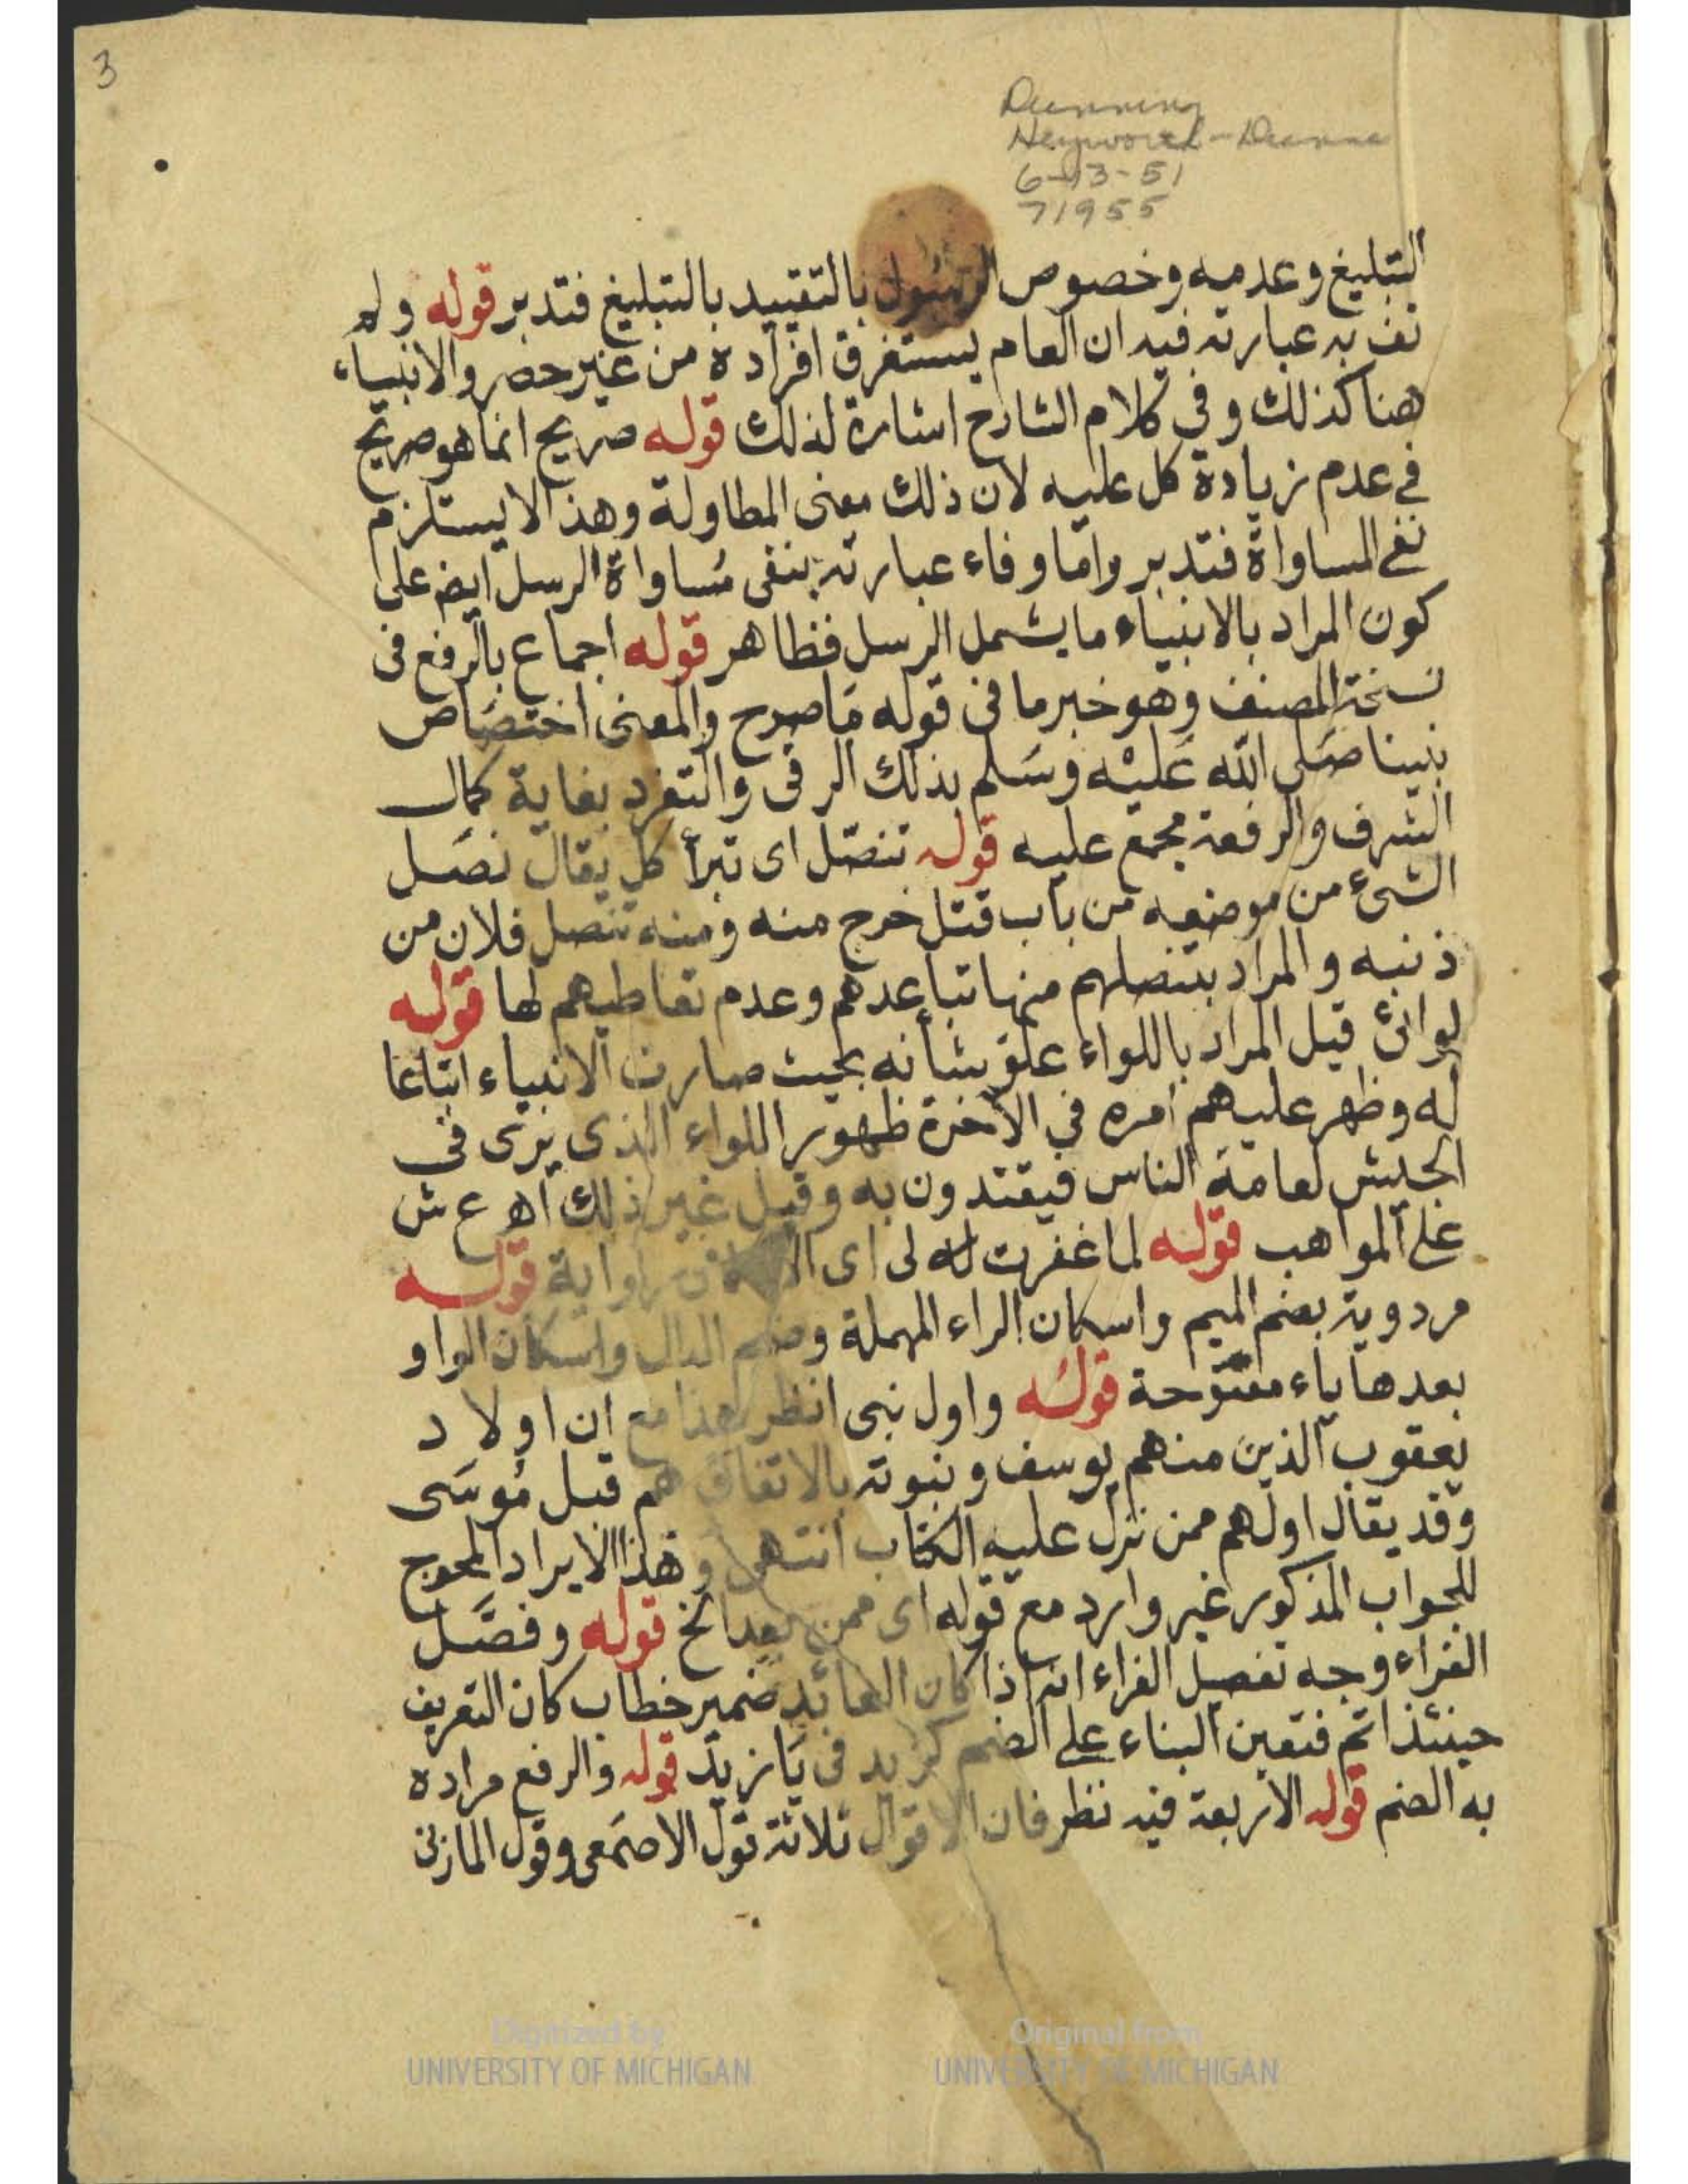 3
Dunning
Heyworth-Dunne
6-13-51
71955
التبليغ وعدمه وخصوص الرسول بالتقييد بالتبليغ فتدبر قوله ولم
تف به عبارته فيه ان العام يستغرق افراده من غير حصر والانبياء
هنا كذلك وفي كلام الشارح اشارة لذلك قوله صريح انما هو صريح
في عدم زيادة كل عليه لان ذلك معنى المطاولة وهذا لا يستلزم
نفي المساواة فتدبر واما وفاء عبارته بنفي مساواة الرسل ايضا على
كون المراد بالانبياء ما يشمل الرسل فظاهر قوله اجماع بالرفع في
نسخة المصنف وهو خبر ما في قوله ما صرح والمعنى اختصاص
نبينا صلى الله عليه وسلم بذلك الرقى والتفرد بغاية كمال
الشرف والرفعة مجمع عليه قوله تنصل اى تبرأ كل يقال نصل
الشئ من موضعه من باب قتل خرج منه ومنه تنصل فلان من
ذنبه والمراد بتنصلهم منها تباعدهم وعدم تعاطيهم لها قوله
لوائ قيل المراد باللواء علو شأنه بحيث صارت الانبياء اتباعا
له وظهر عليهم امره في الآخرة ظهور اللواء الذى يرى في
الجيش لعامة الناس فيقتدون به وقيل غير ذلك اه ع ش
على المواهب قوله لما غفرت له لى اى رواية قوله
مردوية بضم الميم واسكان الراء المهملة وضم الدال واسكان الواو
بعدها ياء مفتوحة قوله واول نبى انظر هذا مع ان اولاد
يعقوب الذين منهم يوسف ونبوته بالاتفاق هم قبل موسى
وقد يقال اولهم ممن نزل عليه الكتاب انتهى وهذا الايراد المحوج
للجواب المذكور غير وارد مع قوله اى ممن بعد الخ قوله وفصل
الفراء وجه تفصيل الفراء انه اذا كان العائد ضمير خطاب كان التعريف
حينئذ اتم فتعين البناء على الضم كزيد في يا زيد قوله والرفع مراده
به الضم قوله الاربعة فيه نظر فان الاقوال ثلاثة قول الاصمعى وقول المازنى
Digitized by
UNIVERSITY OF MICHIGAN
Original from
UNIVERSITY OF MICHIGAN